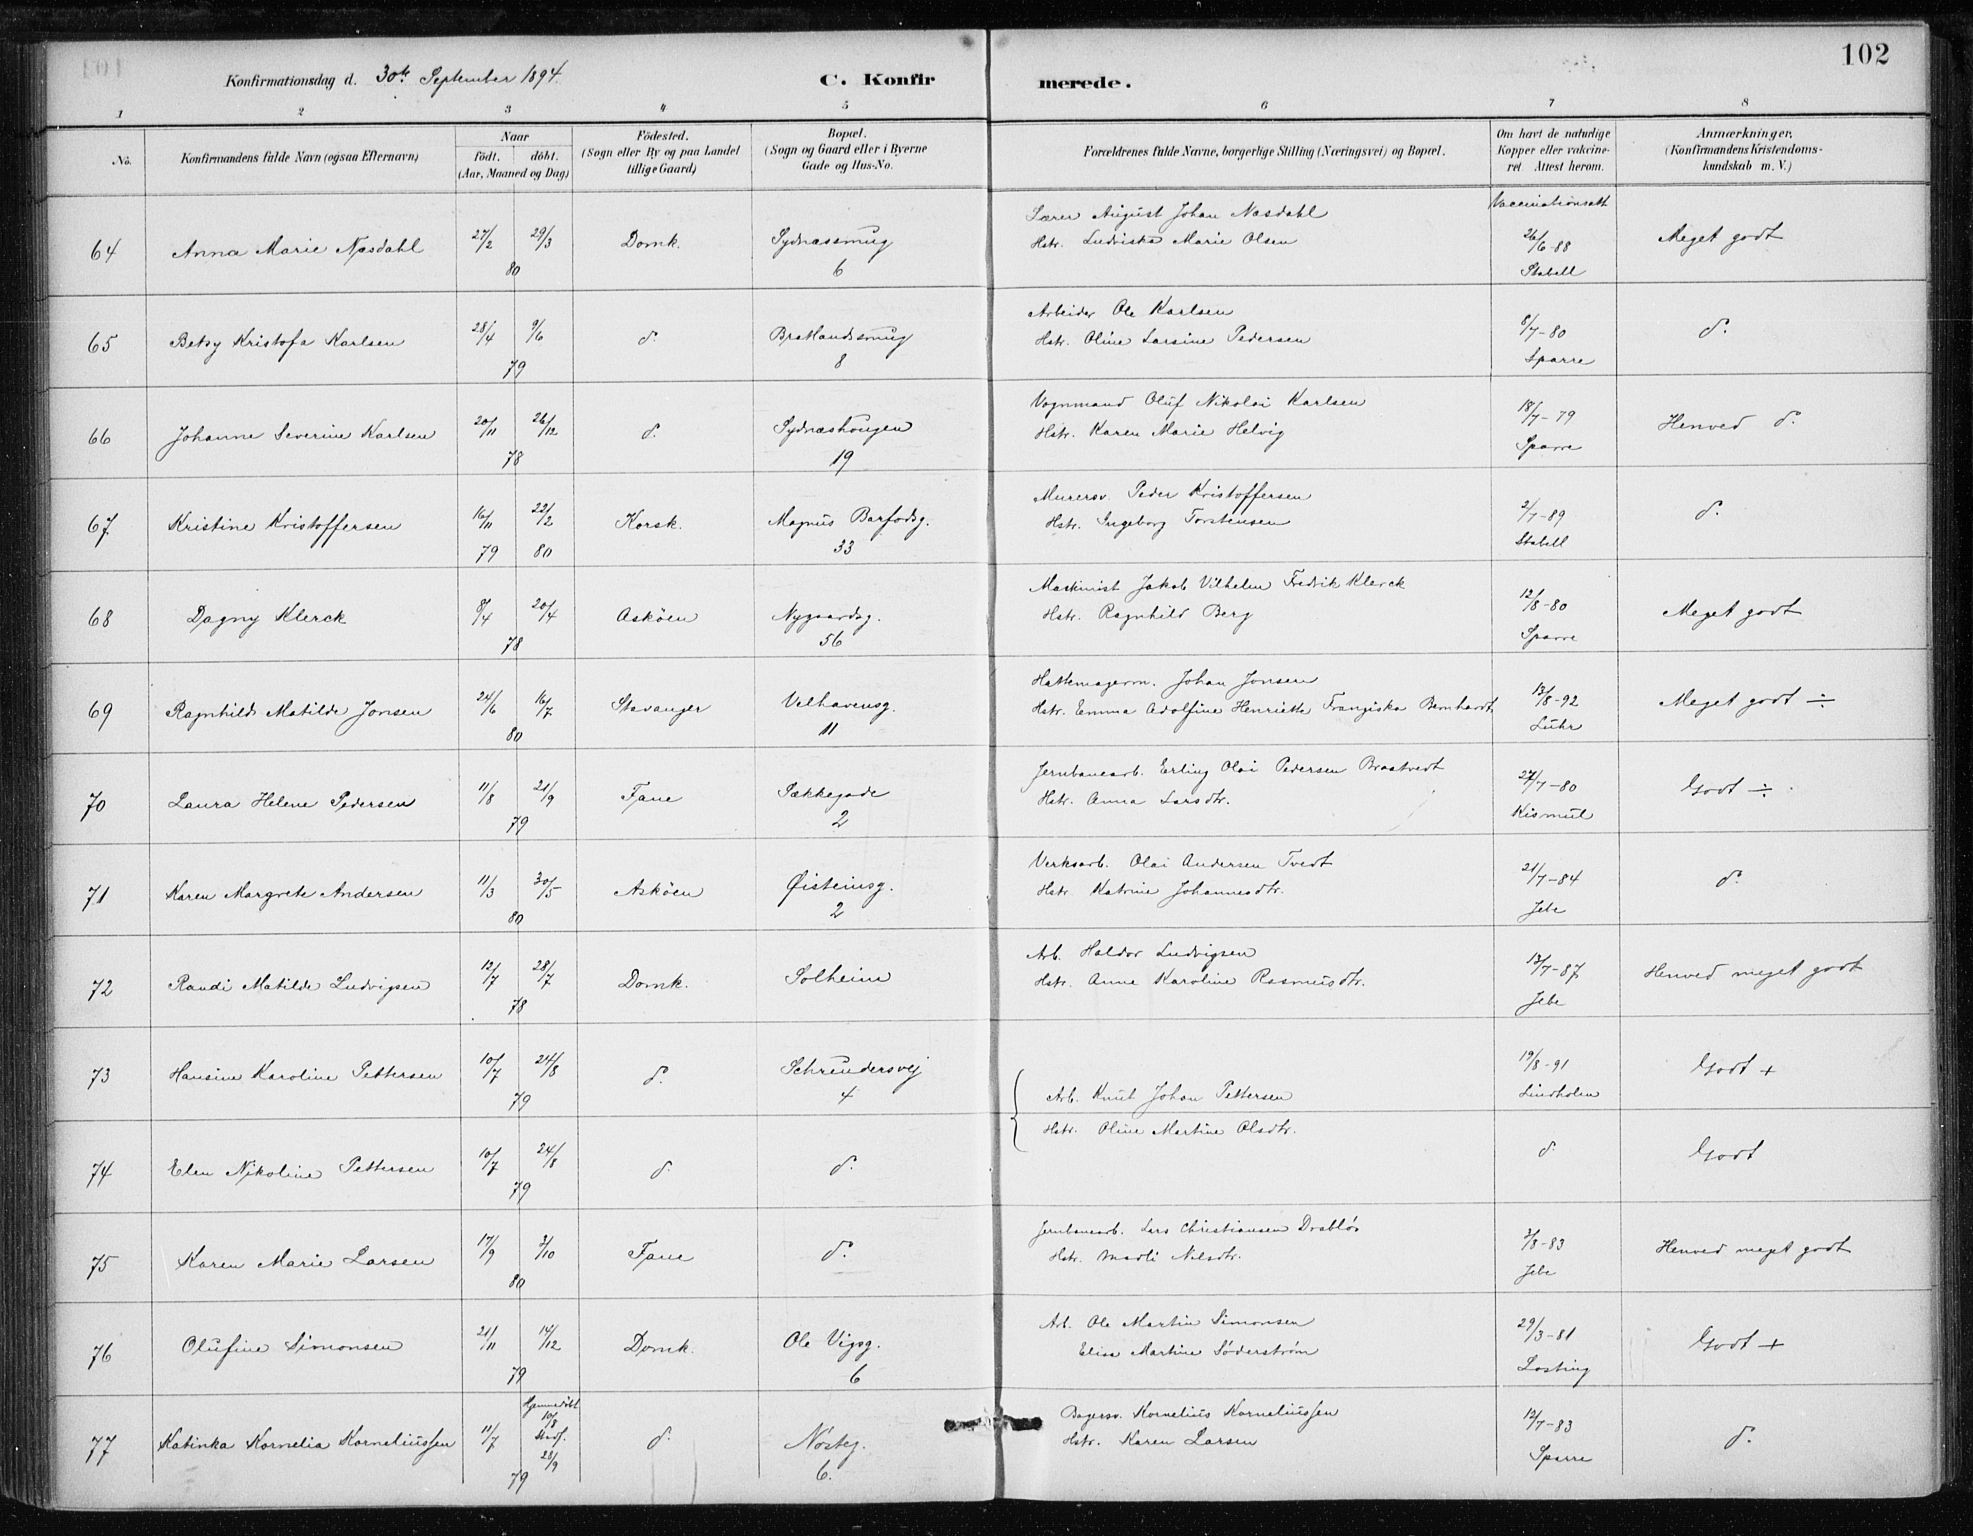 102
Konfirmationsdag d. 30te September 1894.
C. Konfir merede.
1 2 3 4 5 6 7 8
No. Konfirmandens fulde Navn (ogsaa Efternavn) Naar födt. döbt. (Aar, Maaned og Dag) Födested. (Sogn eller By og paa Landet tillige Gaard) Bopæl. (Sogn og Gaard eller i Byerne Gade og Hus-No. Forældrenes fulde Navne, borgerlige Stilling (Næringsvei) og Bopæl. Om havt de naturlige Kopper eller vakcineret. Attest herom. Anmærkninger. (Konfirmandens Kristendomskundskab m. V.)
Vaccinationsatt.
64 Anna Marie Næsdahl 27/2 29/3 80 Domk. Sydnæssmug 6 Lærer August Johan Næsdahl
Hstr. Ludviska Marie Olsen 26/6-88 Stabell Meget godt
65 Betsy Kristofa Karlsen 28/4 9/6 79 d. Bratlandssmug 8 Arbeider Ole Karlsen
Hstr. Oline Larsine Pedersen 8/7-80 Sparre d.
66 Johanne Severine Karlsen 20/11 26/12 78 d. Sydneshougen 19 Vognmand Oluf Nikolai Karlsen
Hstr. Karen Marie Helvig 18/7-79 Sparre Henved d.
67 Kristine Kristoffersen 16/11 79 22/2 80 Korsk. Magnus Barfodsg. 33 Murersv. Peder Kristoffersen
Hstr. Ingeborg Torstensen 2/7-89 Stabell d.
68 Dagny Klerck 8/4 20/4 78 Asköen Nygaardsg. 56 Maskinist Jakob Vilhelm Fredrik Klerck
Hstr. Ragnhild Berg 12/8-80 Sparre Meget godt
69 Ragnhild Matilde Jonsen 24/6 16/7 80 Stavanger Velhavensg. 11 Hattemagerm. Johan Jonsen
Hstr. Emma Adolfine Henriette Franziska Bernhardt 13/8-92 Lühr Meget godt ÷
70 Laura Helene Pedersen 11/8 21/9 79 Fane Sækkegade 2 Jernbanearb. Erling Olai Pedersen Braatvedt
Hstr. Anna Larsdtr. 27/7-80 Kismul Godt ÷
71 Karen Margrete Andersen 11/3 30/5 80 Asköen Øisteinsg. 2 Verksarb. Olai Andersen Tvedt
Hstr. Katrine Johannesdtr. 21/7-84 Jebe d.
72 Randi Matilde Ludvigsen 12/7 28/7 78 Domk. Solheim Arb. Haldor Ludvigsen
Hstr. Anna Karoline Rasmusdtr. 13/7-87 Jebe Henved meget godt
73 Hansine Karoline Pettersen 10/7 24/8 79 d. Schreudersvej 4 Arb. Knut Johan Pettersen 19/8-91 Lindholm Godt +
74 Elen Nikoline Pettersen 10/7 24/8 79 d. d. Hstr. Oline Martine Olsdtr. d. Godt
75 Karen Marie Larsen 17/9 3/10 80 Fane d. Jernbanearb. Lars Christiansen Drabløs
Hstr. Marli Nilsdtr. 3/8-83 Jebe Henved meget godt
76 Olufine Simonsen 21/11 14/12 79 Domk. Ole Vigsg. 6 Arb. Ole Martin Simonsen
Elise Martine Søderstrøm 29/3-81 Losting Godt +
77 Katinka Kornelia Korneliussen 11/7 Hjemmedöbt 10/8 Stadf. 28/9 79 d. Nösteg. 6. Bagersv. Kornelius Korneliussen
Hstr. Karen Larsen 12/7-83 Sparre d.